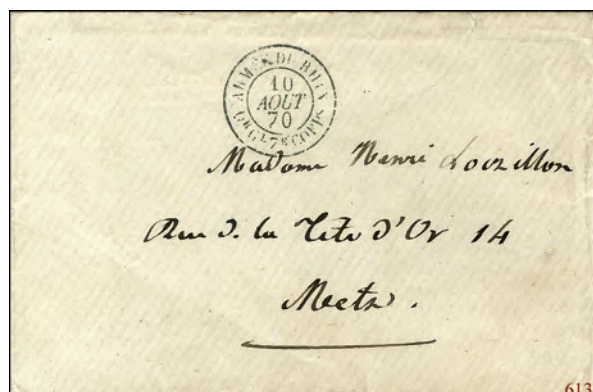 ARMÉE DU RHIN
10
AOUT
70
Gd Ql 7e CORPS
Madame Henri Loizillon
Rue de la Tête d'Or 14
Metz.
613